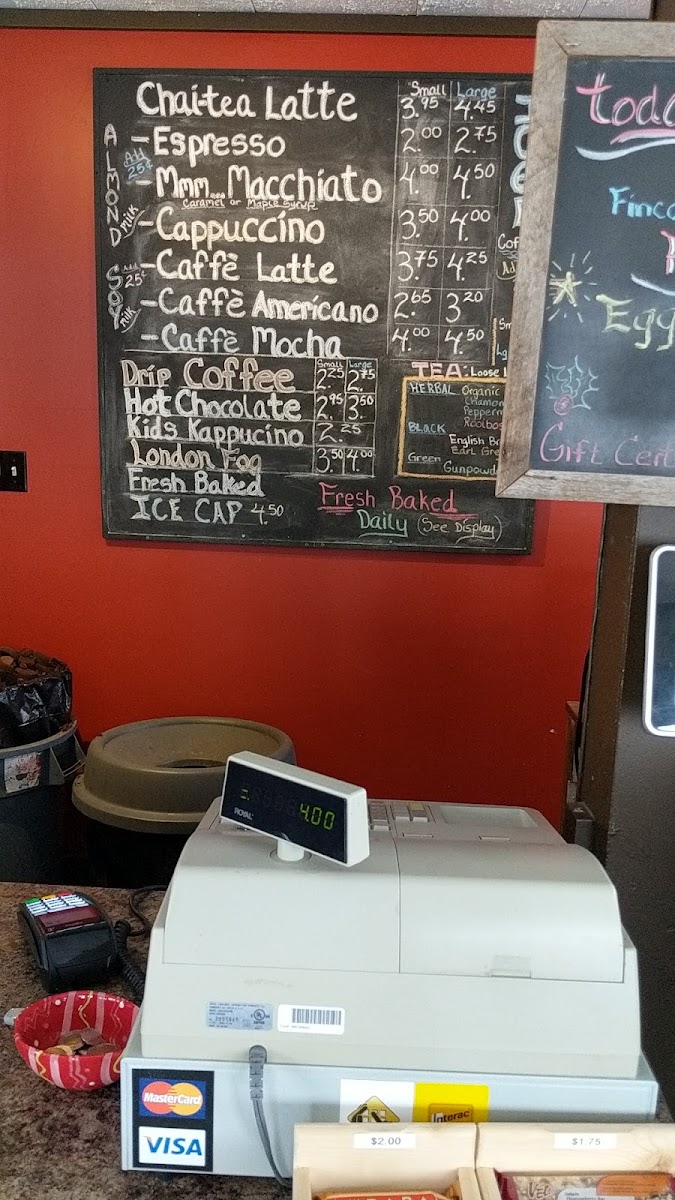 Small Large
Chai-tea Latte 3.95 4.45
-Espresso 2.00 2.75
-Mmm... Macchiato 4.00 4.50
Caramel or Maple Syrup
-Cappuccino 3.50 4.00
-Caffè Latte 3.75 4.25
-Caffè Americano 2.65 3.20
-Caffè Mocha 4.00 4.50
ALMOND milk
Add 25¢
Soy milk
Add 25¢
Small Large
Drip Coffee 2.25 2.75
Hot Chocolate 2.95 3.50
Kids Kappucino 2.25
London Fog 3.50 4.00
Fresh Baked
ICE CAP 4.50
TEA: Loose
HERBAL Organic
Peppermi
Rooibos
BLACK
English Br
Earl Gre
Green
Gunpowd
Fresh Baked
Daily (See Display)
toda
Finco
Egg
Gift Cert
4.00
ROYAL
MasterCard
VISA
Interac
$2.00
$1.75